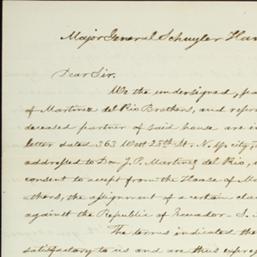 Major General Schuyler Ham
Dear Sir.
We the undersigned, pa
of Martinez del Rio Brothers, and repre
deceased partner of said house are in
letter dated 363 West 28th St. N.
addressed to Don J. P. Martinez del Rio,
consent to accept from the House of M
thers, the assignment of a certain cla
against the Republic of Ecuador -
The terms indicated th
satisfactory to us and are thus expres